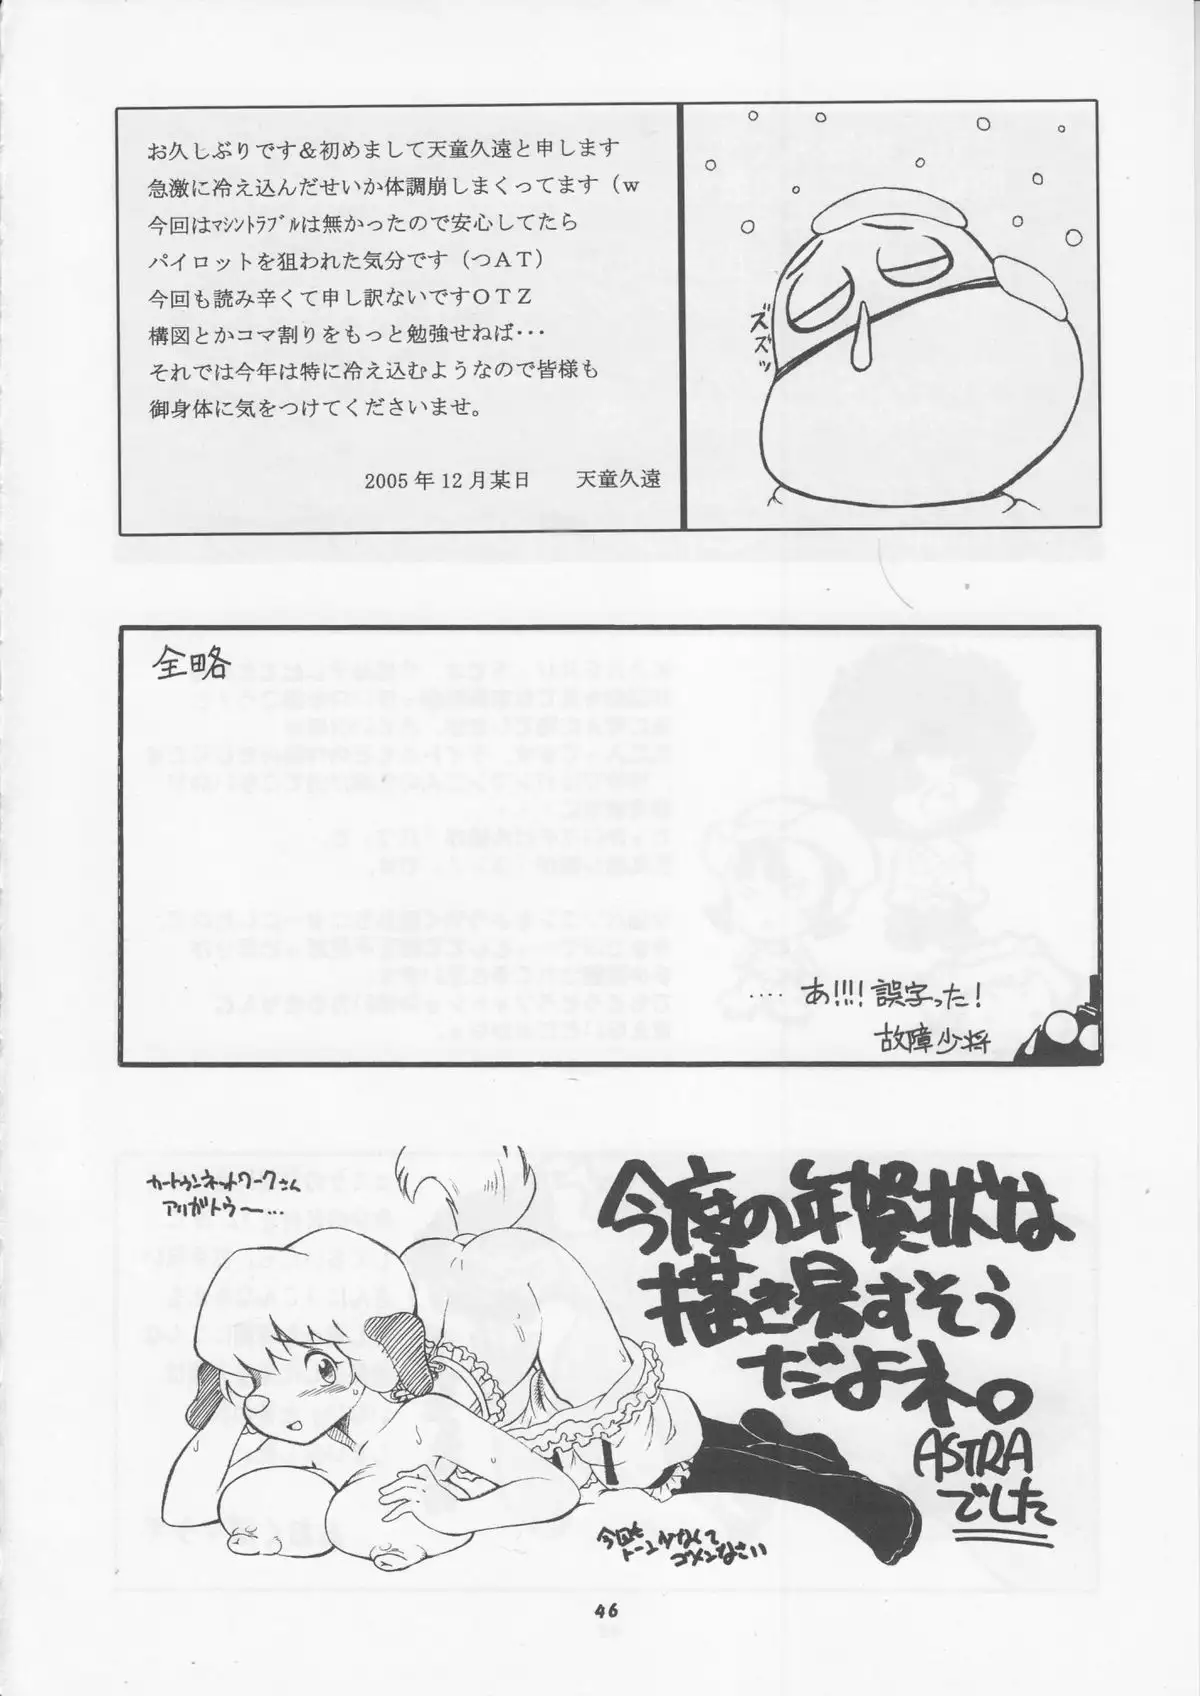 お久しぶりです＆初めまして天童久遠と申します
急激に冷え込んだせいか体調崩しまくってます（ｗ
今回はﾏｼﾝﾄﾗﾌﾞﾙは無かったので安心してたら
パイロットを狙われた気分です（つＡＴ）
今回も読み辛くて申し訳ないですＯＴＺ
構図とかコマ割りをもっと勉強せねば･･･
それでは今年は特に冷え込むようなので皆様も
御身体に気をつけてくださいませ。
2005年12月某日　　天童久遠
ズズズッ
全略
‥‥ あ!!!! 誤字った!
故障少将
カートゥンネットワークさん
アリガトウ〜…
今度の年賀状は
描き易すそう
だよネ。
ASTRA
でした
今回も
トーンがなくて
ゴメンなさい
46